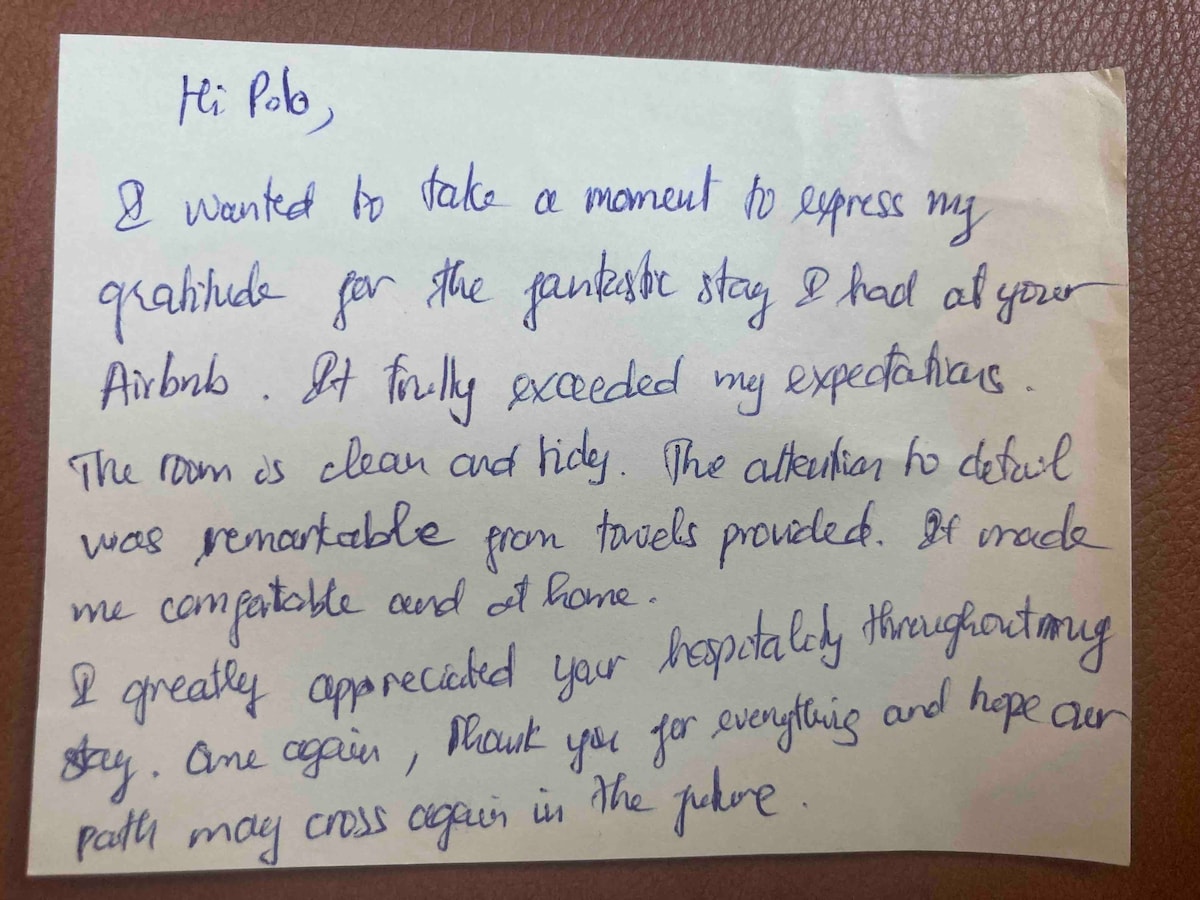 Hi Polo,
I wanted to take a moment to express my
gratitude for the fantastic stay I had at your
Airbnb. It truly exceeded my expectations.
The room is clean and tidy. The attention to detail
was remarkable from towels provided. It made
me comfortable and at home.
I greatly appreciated your hospitality throughout my
stay. One again, Thank you for everything and hope our
path may cross again in the future.